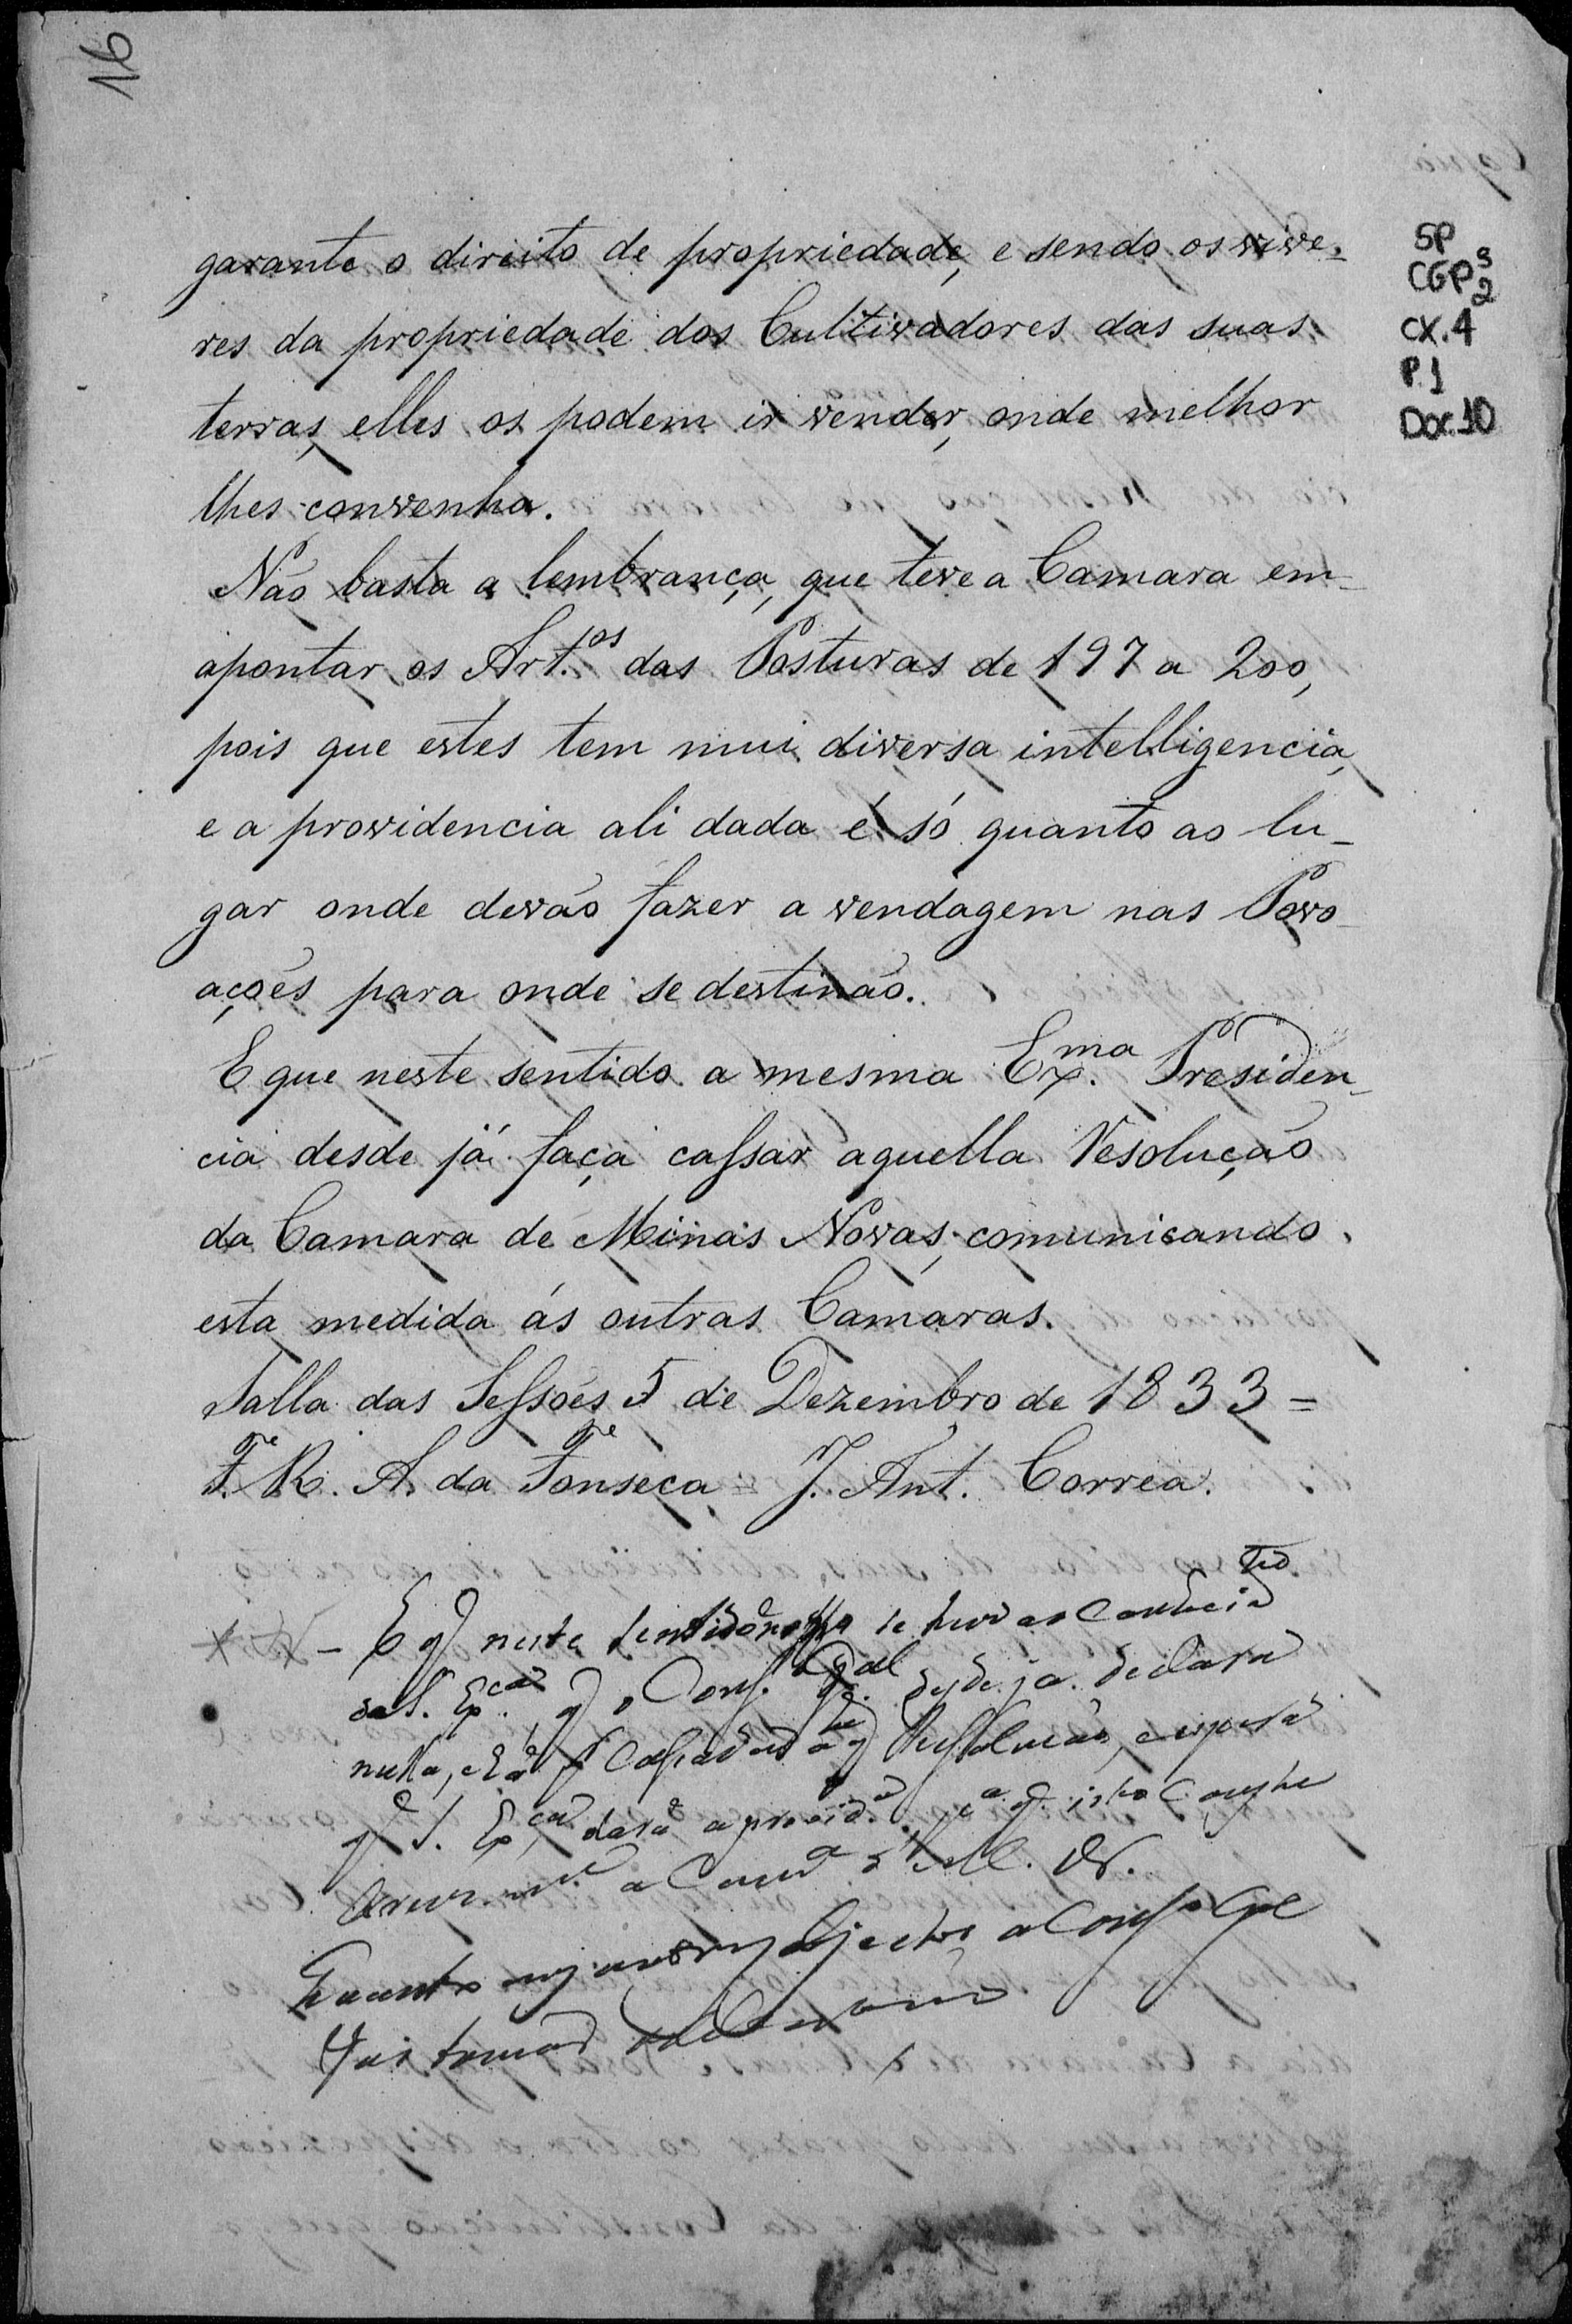 16
SP
CGP 3
2
CX. 4
P. 1
Doc. 10
garante o direito de propriedade, e sendo os vive-
res da propriedade dos Cultivadores das suas
terras, elles os podem ir vender, onde melhor
lhes convenha.
Não basta a lembrança, que teve a Camara em
apontar os Art.os das Posturas de 197 a 200,
pois que estes tem mui diversa intelligencia,
e a providencia ali dada é só quanto ao lu-
gar onde devão fazer a vendagem nas Povo-
ações para onde se destinão.
E que neste sentido a mesma Ex.ma Presiden-
cia desde já faça cassar aquella Resolução
da Camara de Minas Novas, comunicando
esta medida ás outras Camaras.
Salla das Sessões 5 de Dezembro de 1833 =
F.e R. A. da Fonseca = J. Ant. Correa.
- E q neste sentido se
da S. Ex.ca q o Cons.o Geral desde já declara
nulla, Resolução, e espera
q S. Ex.ca dará a provid.a p.a q isto
a Cam.a
Quanto objecto o Cons.o Geral